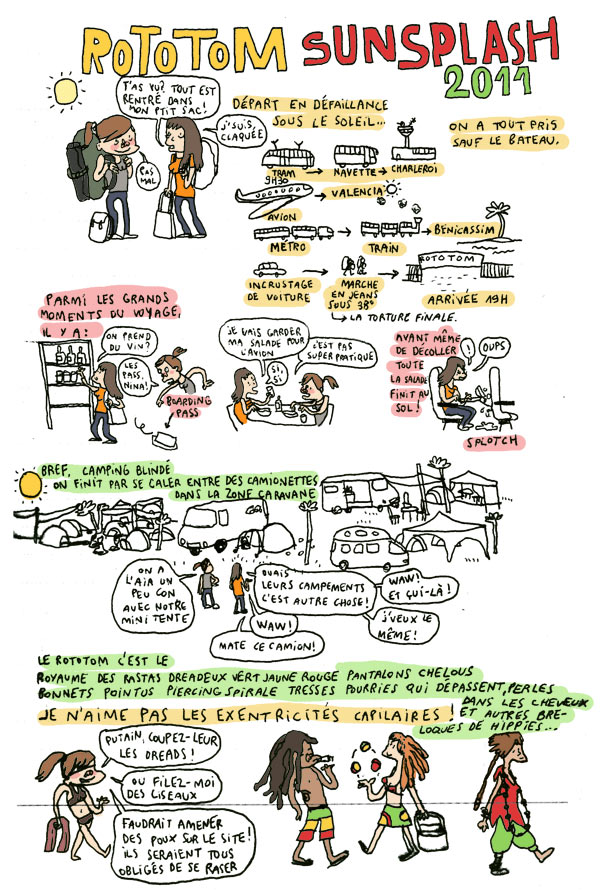 ROTOTOM SUNSPLASH
2011
T'AS VU? TOUT EST
RENTRÉ DANS
MON PTIT SAC!
J'SUIS
CLAQUÉE
PAS
MAL
DÉPART EN DÉFAILLANCE
SOUS LE SOLEIL...
ON A TOUT PRIS
SAUF LE BATEAU.
TRAM
9H30
NAVETTE
CHARLEROI
VALENCIA
AVION
MÉTRO
TRAIN
BENICASSIM
ROTOTOM
INCRUSTAGE
DE VOITURE
MARCHE
EN JEANS
SOUS 38°
ARRIVÉE 19H
LA TORTURE FINALE.
PARMI LES GRANDS
MOMENTS DU VOYAGE,
IL Y A:
ON PREND
DU VIN?
LES
PASS,
NINA!
BOARDING
PASS
JE VAIS GARDER
MA SALADE POUR
L'AVION
C'EST PAS
SUPER PRATIQUE
SI,
SI
AVANT MÊME
DE DÉCOLLER
TOUTE
LA SALADE
FINIT AU
SOL!
!
OUPS
SPLOTCH
BREF, CAMPING BLINDÉ
ON FINIT PAR SE CALER ENTRE DES CAMIONETTES
DANS LA ZONE CARAVANE
ON A
L'AIR UN
PEU CON
AVEC NOTRE
MINI TENTE
OUAIS
LEURS CAMPEMENTS
C'EST AUTRE CHOSE!
WAW!
MATE CE CAMION!
WAW!
ET ÇUI-LÀ!
J'VEUX LE
MÊME!
LE ROTOTOM C'EST LE
ROYAUME DES RASTAS DREADEUX VERT JAUNE ROUGE PANTALONS CHELOUS
BONNETS POINTUS PIERCING SPIRALE TRESSES POURRIES QUI DÉPASSENT, PERLES
DANS LES CHEVEUX
ET AUTRES BRE-
LOQUES DE HIPPIES...
JE N'AIME PAS LES EXENTRICITÉS CAPILAIRES!
PUTAIN, COUPEZ-LEUR
LES DREADS!
OU FILEZ-MOI
DES CISEAUX
FAUDRAIT AMENER
DES POUX SUR LE SITE!
ILS SERAIENT TOUS
OBLIGÉS DE SE RASER